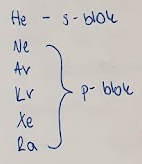 He - s-blok
Ne
Ar
Kr
Xe
Ra
p-blok